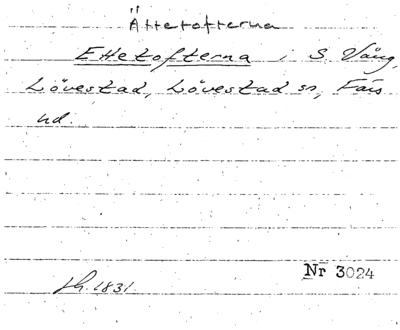 Ättetofterna
Ettetofterna i S. Vång,
Lövestad, Lövestad sn, Färs
hd.
Nr 3024
sh. 1831